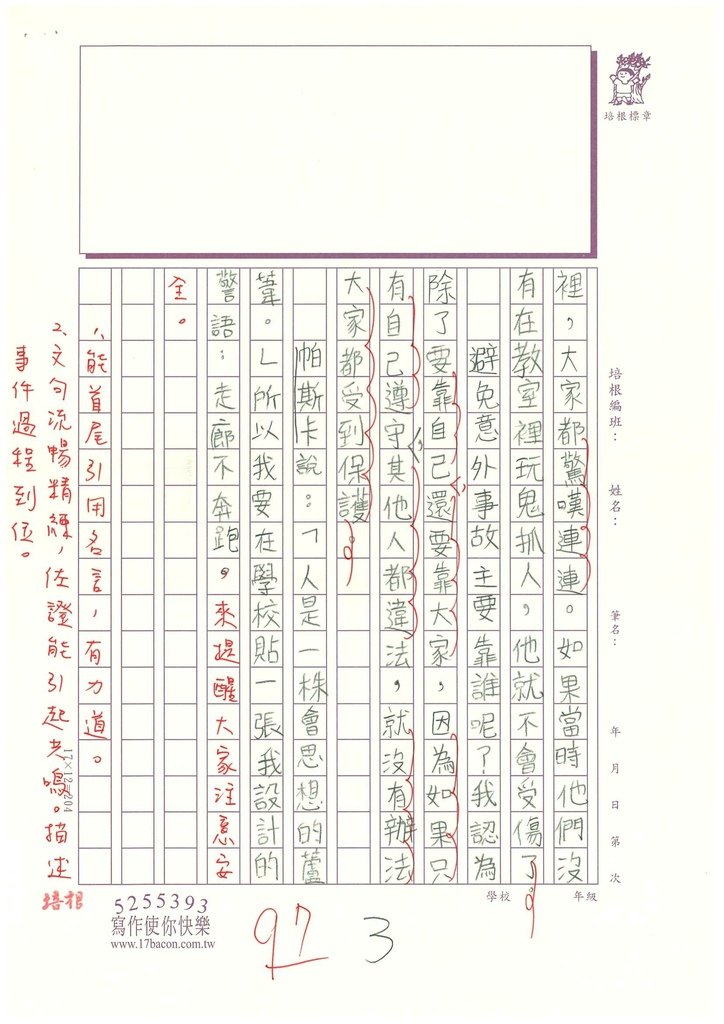 培根標章
培根編班：　姓名：　筆名：　年　月　日　第　次
學校　年級
裡，大家都驚嘆連連。如果當時他們沒
有在教室裡玩鬼抓人，他就不會受傷了。
避免意外事故主要靠誰呢？我認為
除了要靠自己，還要靠大家，因為如果只
有自己遵守，其他人都違法，就沒有辦法
大家都受到保護。
帕斯卡說：「人是一株會思想的蘆
葦。」所以我要在學校貼一張我設計的
警語：走廊不奔跑。來提醒大家注意安
全。
1、能首尾引用名言，有力道。
2、文句流暢精練，佐證能引起共鳴。描述
事件過程到位。
17×12=204
培根
5255393
寫作使你快樂
www.17bacon.com.tw
97
3